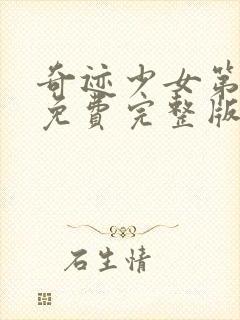 奇迹少女第
免費完整版
石生情